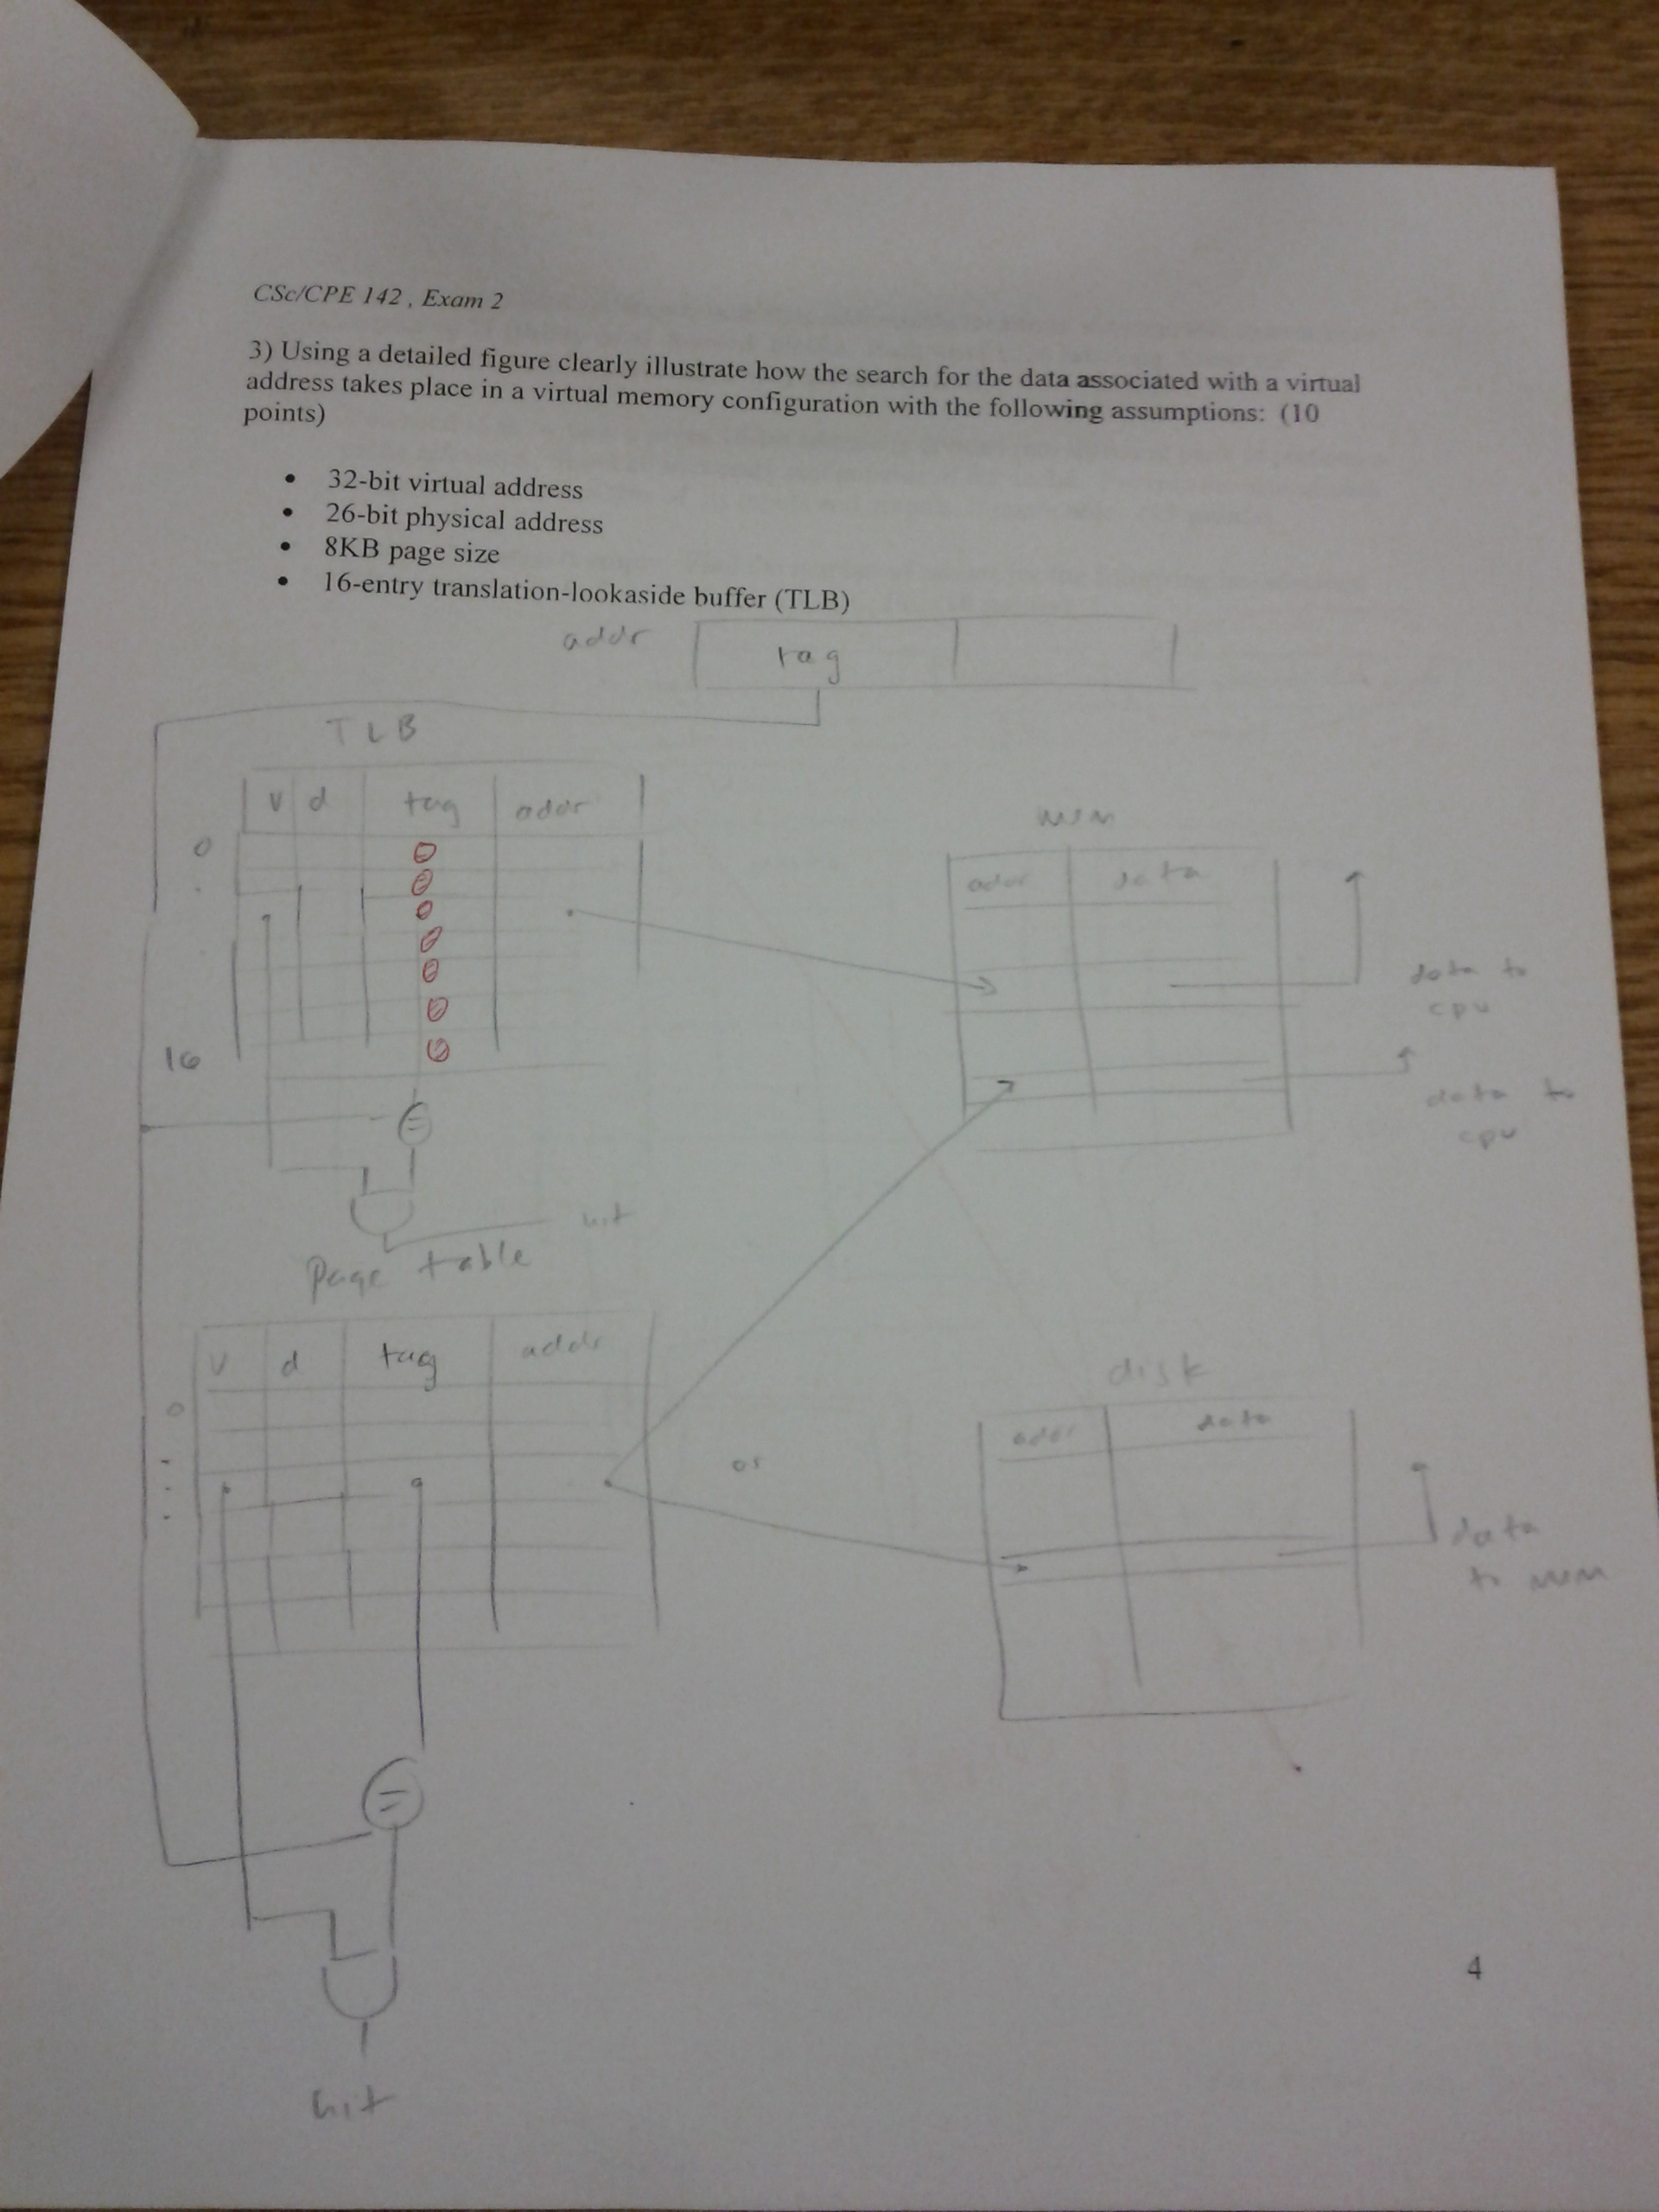 CSc/CPE 142 , Exam 2
3) Using a detailed figure clearly illustrate how the search for the data associated with a virtual
address takes place in a virtual memory configuration with the following assumptions: (10
points)
• 32-bit virtual address
• 26-bit physical address
• 8KB page size
• 16-entry translation-lookaside buffer (TLB)
addr
tag
TLB
v d tag addr
0
16
=
hit
mem
addr data
data to
cpu
data to
cpu
Page table
v d tag addr
0
or
disk
addr data
data
to mem
=
hit
4